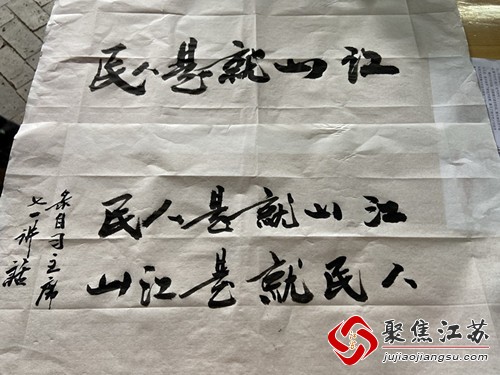 江山就是人民
江山就是人民
人民就是江山
录自习主席
七一讲话
聚焦江苏
jujiaojiangsu.com